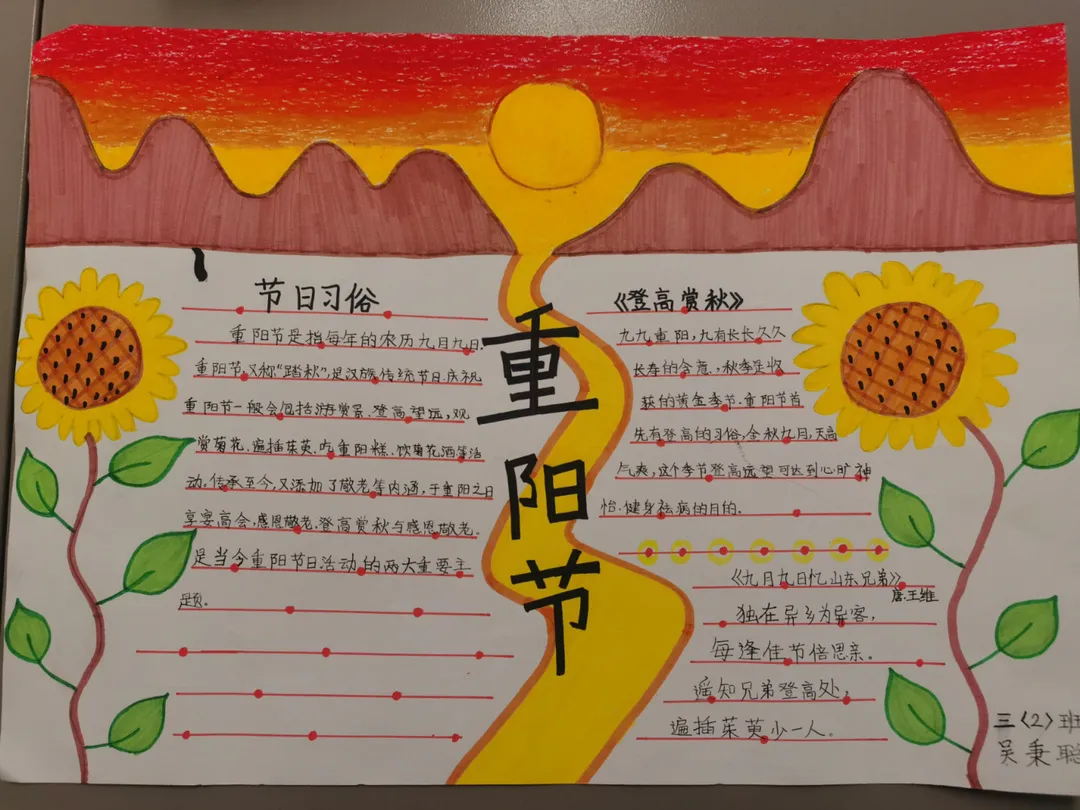 节日习俗
重阳节是指每年的农历九月九日.
重阳节,又称“踏秋”,是汉族传统节日.庆祝
重阳节一般会包括游赏景、登高望远,观
赏菊花、遍插茱萸、吃重阳糕、饮菊花酒等活
动,传承至今,又添加了敬老等内涵,于重阳之日
享宴高会,感恩敬老.登高赏秋与感恩敬老.
是当今重阳节日活动的两大重要主
题.
重阳节
《登高赏秋》
九九重阳,九有长长久久
长寿的含意,秋季是收
获的黄金季节.重阳节首
先有登高的习俗,金秋九月,天高
气爽,这个季节登高远望可达到心旷神
怡.健身祛病的目的.
《九月九日忆山东兄弟》
唐.王维
独在异乡为异客,
每逢佳节倍思亲。
遥知兄弟登高处,
遍插茱萸少一人。
三〈2〉班
吴秉聪